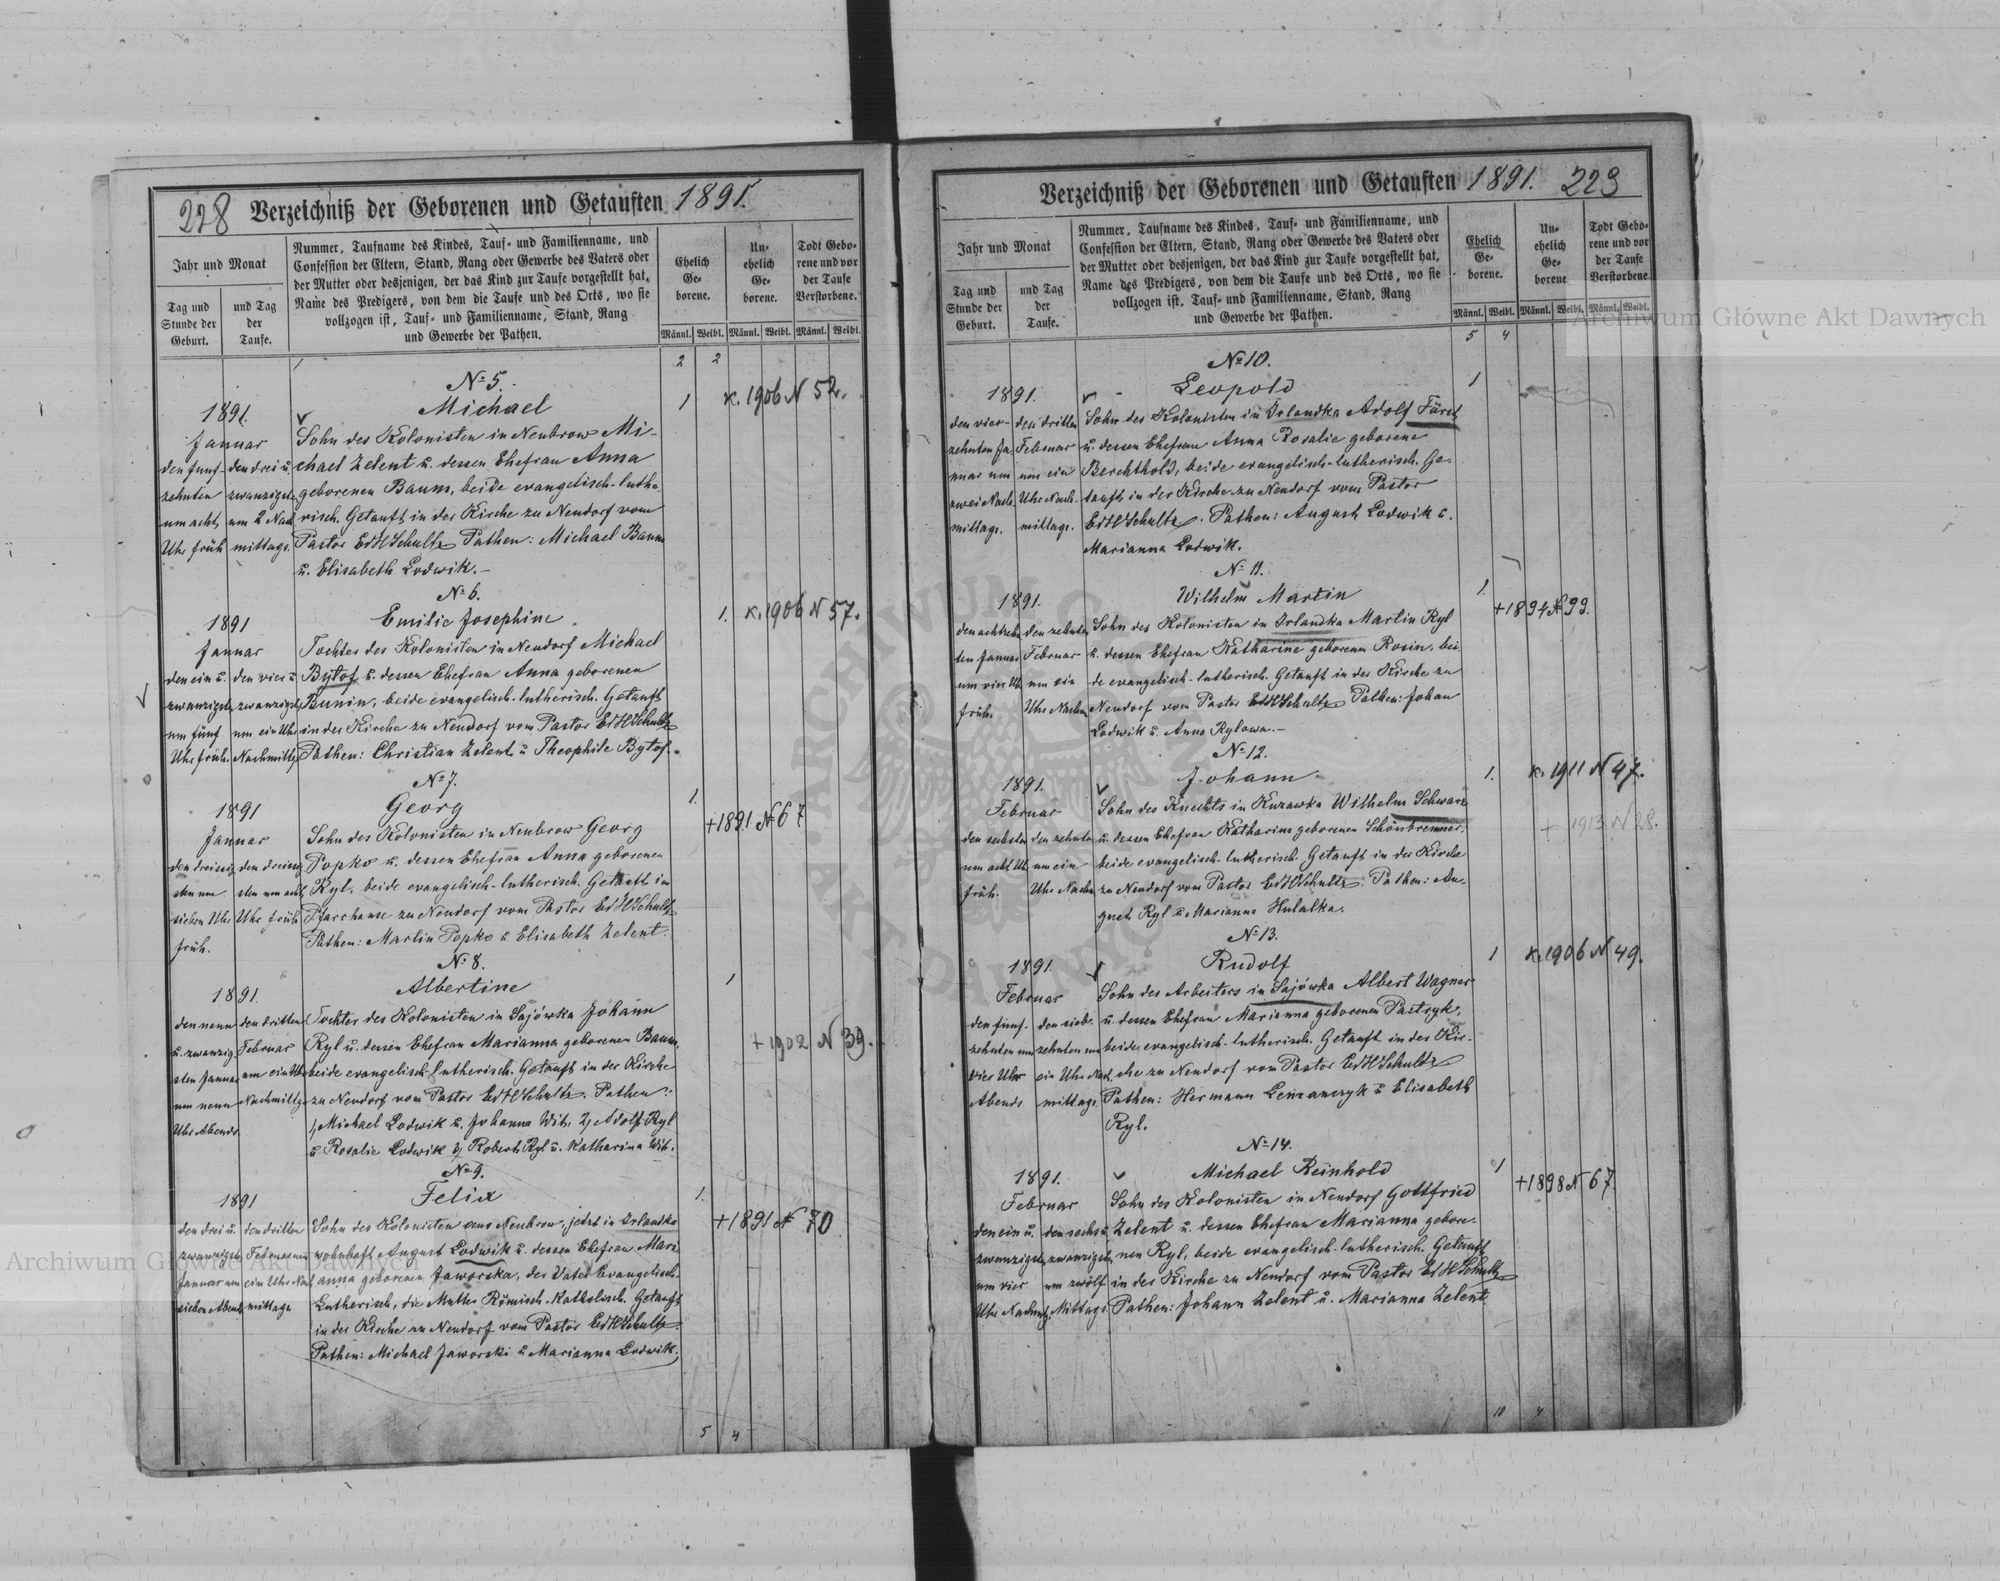 228 Verzeichniß der Geborenen und Getauften 1891.
Jahr und Monat
Tag und Stunde der Geburt.
und Tag der Taufe.
Nummer, Taufname des Kindes, Tauf- und Familienname, und
Confession der Eltern, Stand, Rang oder Gewerbe des Vaters oder
der Mutter oder desjenigen, der das Kind zur Taufe vorgestellt hat,
Name des Predigers, von dem die Taufe und des Orts, wo sie
vollzogen ist, Tauf- und Familienname, Stand, Rang
und Gewerbe der Pathen.
Ehelich Ge- borene.
Un- ehelich Ge- borene.
Todt Gebo- rene und vor der Taufe Verstorbene.
Männl. Weibl. Männl. Weibl. Männl. Weibl.
2 2
No 5.
Michael
1
K. 1906 N 52.
1891.
Januar
den funf- zehnten um acht Uhr früh
den drei u. zwanzigsten um 2 Nach mittags.
Sohn des Kolonisten in Neubrow Mi-
chael Zelent u. dessen Ehefrau Anna
geborenen Baum, beide evangelisch-luthe-
risch. Getauft in der Kirche zu Neudorf vom
Pastor EdHSchultz Pathen: Michael Baum
u. Elisabeth Lodwik.-
No 6.
Emilie Josephine
1.
K. 1906 N 57.
1891
Januar
den ein u. zwanzigsten um fünf Uhr früh.
den vier u. zwanzigsten um ein Uhr Nachmittgs
Tochter des Kolonisten in Neudorf Michael
Bytof u. dessen Ehefrau Anna geborenen
Bunin, beide evangelisch-lutherisch. Getauft
in der Kirche zu Neudorf vom Pastor EdHSchultz
Pathen: Christian Zelent u Theophile Bytof.
No 7.
Georg
1.
+1891 N 67
1891
Januar
den dreissig- sten um sieben Uhr früh.
den dreissig- sten um acht Uhr früh
Sohn des Kolonisten in Neubrow Georg
Popko u. dessen Ehefrau Anna geborenen
Ryl, beide evangelisch-lutherisch. Getauft im
Pfarrhause zu Neudorf vom Pastor EdHSchultz
Pathen: Martin Popko u Elisabeth Zelent.
No 8.
Albertine
1
+ 1902 N 39.
1891.
den neun u. zwanzig- sten Januar um neun Uhr Abends.
den dritten Februar um ein Uhr Nachmittgs
Tochter des Kolonisten in Sajówka Johann
Ryl u. dessen Ehefrau Marianna geborenen Baum,
beide evangelisch-lutherisch. Getauft in der Kirche
zu Neudorf vom Pastor EdHSchultz. Pathen:
1, Michael Lodwik u. Johanna Wit. 2, Adolf Ryl
u Rosalie Lodwik 3, Robert Ryl u. Katharina Wit.
No 9.
Felix
1.
+1891 N 70
1891
den drei u. zwanzigsten Januar um sieben Abends
den dritten Februar um ein Uhr Nach mittags
Sohn des Kolonisten aus Neubrow, jetzt in Irlandka
wohnhaft August Lodwik u. dessen Ehefrau Mari-
anna geborenen Jaworska, der Vater Evangelisch-
Lutherisch, die Mutter Römisch-Katholisch. Getauft
in der Kirche zu Neudorf vom Pastor EdHSchultz.
Pathen: Michael Jaworski u Marianna Lodwik.
5 4
Verzeichniß der Geborenen und Getauften 1891. 229
Jahr und Monat
Tag und Stunde der Geburt.
und Tag der Taufe.
Nummer, Taufname des Kindes, Tauf- und Familienname, und
Confession der Eltern, Stand, Rang oder Gewerbe des Vaters oder
der Mutter oder desjenigen, der das Kind zur Taufe vorgestellt hat,
Name des Predigers, von dem die Taufe und des Orts, wo sie
vollzogen ist, Tauf- und Familienname, Stand, Rang
und Gewerbe der Pathen.
Ehelich Ge- borene.
Un- ehelich Ge- borene
Todt Gebo- rene und vor der Taufe Verstorbene.
Männl. Weibl. Männl. Weibl. Männl. Weibl.
5 4
No 10.
Leopold
1
1891.
den vier- zehnten Ja- nuar um zwei Nach- mittags.
den dritten Februar um ein Uhr Nach- mittags.
Sohn des Kolonisten in Irlandka Adolf Fürst
u. dessen Ehefrau Anna Rosalie geborene
Berchthold, beide evangelisch-lutherisch. Ge-
tauft in der Kirche zu Neudorf vom Pastor
EdHSchultz. Pathen: August Lodwik u.
Marianna Lodwik.
No 11.
Wilhelm Martin
1.
+1894 N 99.
1891.
den achtzehn- ten Januar um vier Uhr früh.
den zehnten Februar um ein Uhr Nachm
Sohn des Kolonisten in Irlandka Martin Ryl
u. dessen Ehefrau Katharine geborenen Rosin, bei-
de evangelisch-lutherisch. Getauft in der Kirche zu
Neudorf vom Pastor EdHSchultz Pathen: Johan
Lodwik u. Anna Rylowa.-
No 12.
Johann
1.
K. 1911 N 47.
+ 1913 N 28.
1891.
Februar
den sechsten um acht Uhr früh.
den zehnten um ein Uhr Nachm
Sohn des Knechts in Kuzawka Wilhelm Schwarz
u. dessen Ehefrau Katharina geborenen Schönbremmer,
beide evangelisch-lutherisch. Getauft in der Kirche
zu Neudorf vom Pastor EdHSchultz. Pathen: Au-
gust Ryl u Marianna Hulalka.
No 13.
Rudolf
1
K. 1906 N 49.
1891.
Februar
den funf- zehnten um vier Uhr Abends
den sieb- zehnten um ein Uhr Nach mittags.
Sohn des Arbeiters in Sajówka Albert Wagner
u. dessen Ehefrau Marianna geborenen Pastryk,
beide evangelisch-lutherisch. Getauft in der Kir-
che zu Neudorf vom Pastor EdHSchultz
Pathen: Hermann Lemanczyk u Elisabeth
Ryl.
No 14.
Michael Reinhold
1
+1898 N 67.
1891.
Februar
den ein u. zwanzigsten um vier Uhr Nachmtg.
den sechs u. zwanzigsten um zwölf Mittags.
Sohn des Kolonisten in Neudorf Gottfried
Zelent u. dessen Ehefrau Marianna gebore-
nen Ryl, beide evangelisch-lutherisch. Getauft
in der Kirche zu Neudorf vom Pastor EdHSchultz
Pathen: Johann Zelent u. Marianna Zelent
10 4
Archiwum Główne Akt Dawnych
Archiwum Główne Akt Dawnych